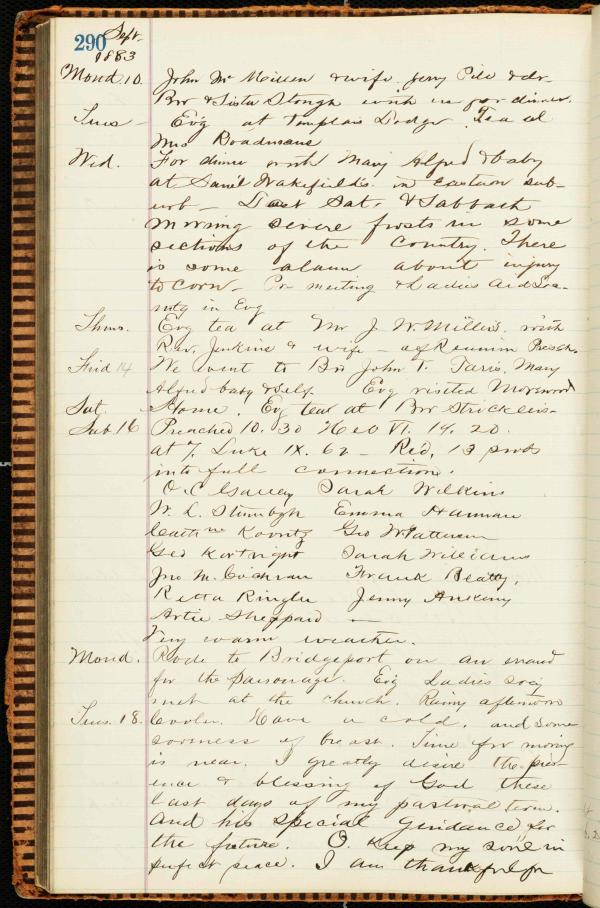 290 Sept.
1883
Mond. 10. John Mc & wife, Jerry Pile & dr.
Bro & Sister Stough with us for dinner.
Tues - Ev'g at Templars Lodge. Tea at
Mrs Boadmans
Wed. For dinner with Mary Alfred & baby
at Saml Wakefields in eastern sub-
urb - Last Sat. & Sabbath
morning severe frosts in some
sections of the country. There
is some alarm about injury
to corn - Pr meeting & Ladies Aid Soc-
in Evg
Thurs. Evg tea at Mr J. W. Millers. with
Rev. Jenkins & wife - of Presch.
Frid 14 We went to Bro John T. Mary
Alfred baby & self. Evg visited
Sat. Home. Evg tea at Bro Stricklers -
Sab. 16 Preached 10.30 Heb VI. 19. 20.
at 7. Luke IX. 62 - Red, 13 probs
into full connection.
O. C. Sarah Wilkins
W. L. Emma Harman
Cathne Koontz Geo W Patterson
Geo Kortright Sarah Williams
Jno M. Cochran Frank Beatty,
Retta Ringler Jenny Ankeny
Artie Sheppard -
Very warm weather.
Mond. Rode to Bridgeport on an errand
for the parsonage. Evg Ladies Socy
met at the church. Rainy afternoon
Tues. 18. Cooler. Have a cold, and some
soreness of breast. Time for moving
is near. I greatly desire the pres-
ence & blessing of God these
last days of my pastoral term.
And his special Guidance for
the future. O. Keep my soul in
perfect peace. I am thankful for